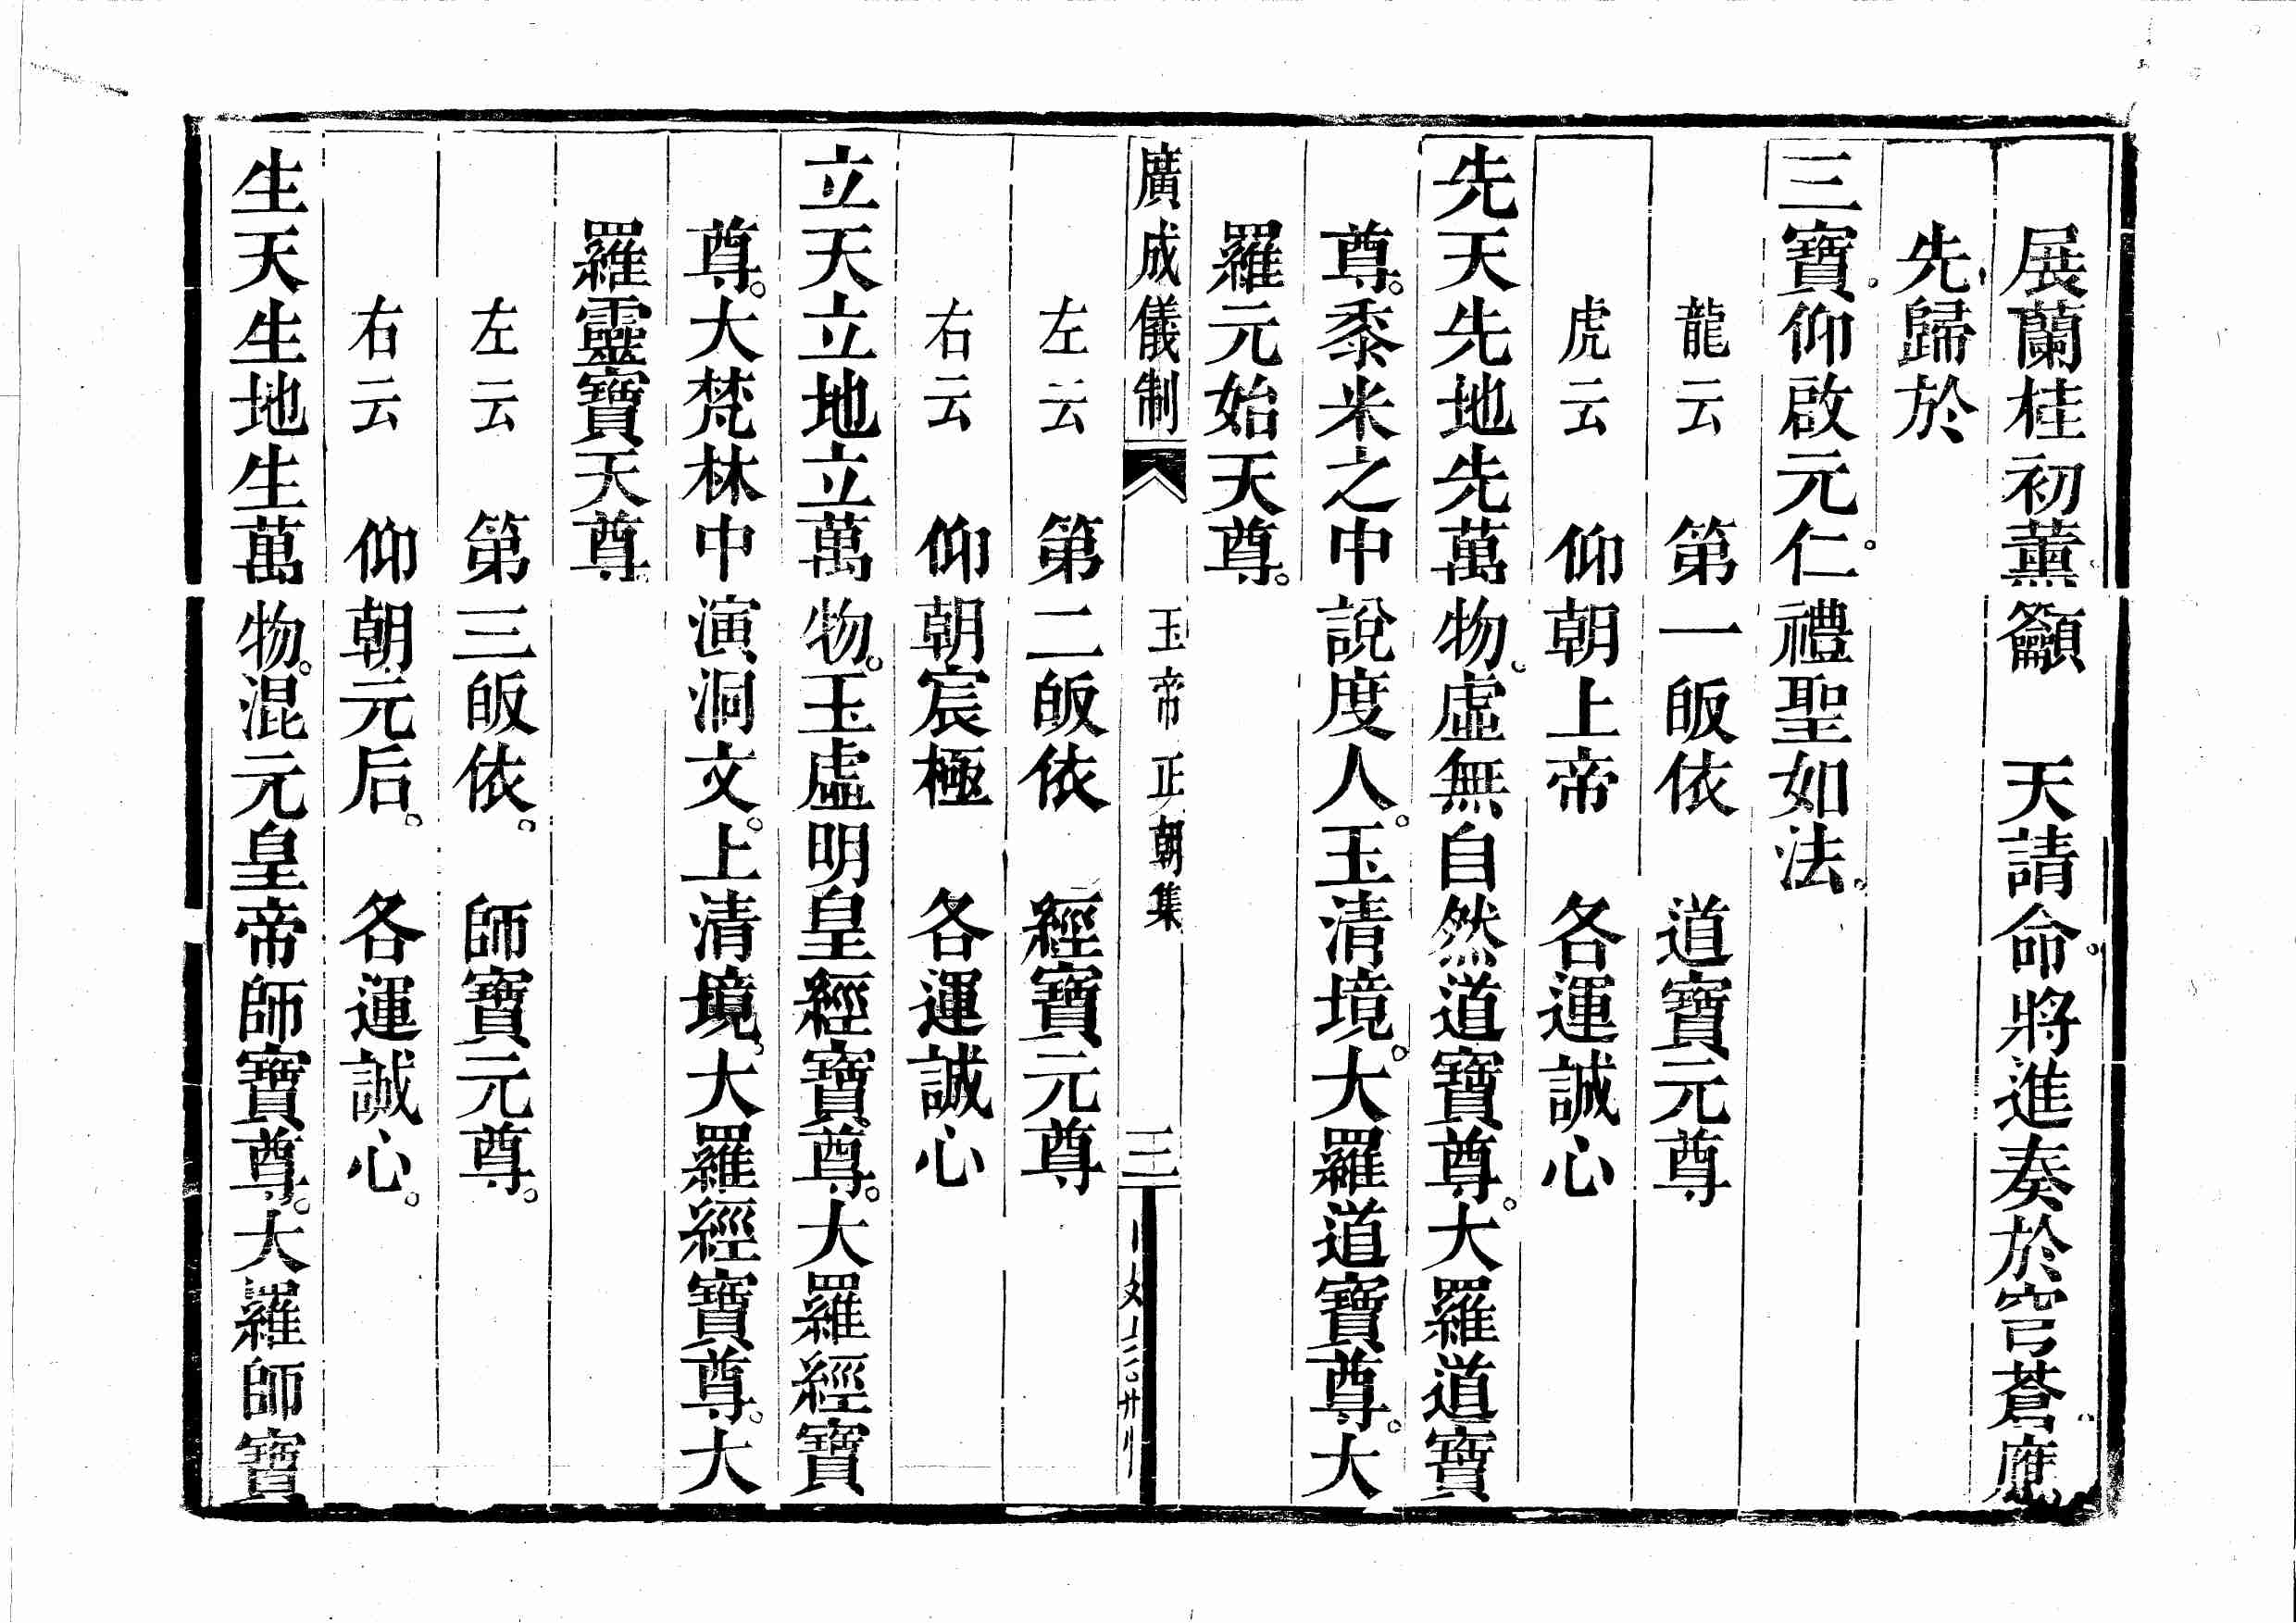 展蘭桂初薰籲　天請命。將進奏於穹蒼。應
先歸於
三寶。仰啟元仁。禮聖如法。
龍云　第一皈依　道寶元尊
虎云　仰朝上帝　各運誠心
先天先地先萬物。虛無自然道寶尊。大羅道寶
尊。黍米之中說度人。玉清境。大羅道寶尊。大
羅元始天尊。
廣成儀制　玉帝正朝集　三
左云　第二皈依　經寶元尊
右云　仰朝宸極　各運誠心
立天立地立萬物。玉虛明皇經寶尊。大羅經寶
尊。大梵林中演洞文。上清境。大羅經寶尊。大
羅靈寶天尊
左云　第三皈依。　師寶元尊。
右云　仰朝元后。　各運誠心。
生天生地生萬物。混元皇帝師寶尊。大羅師寶